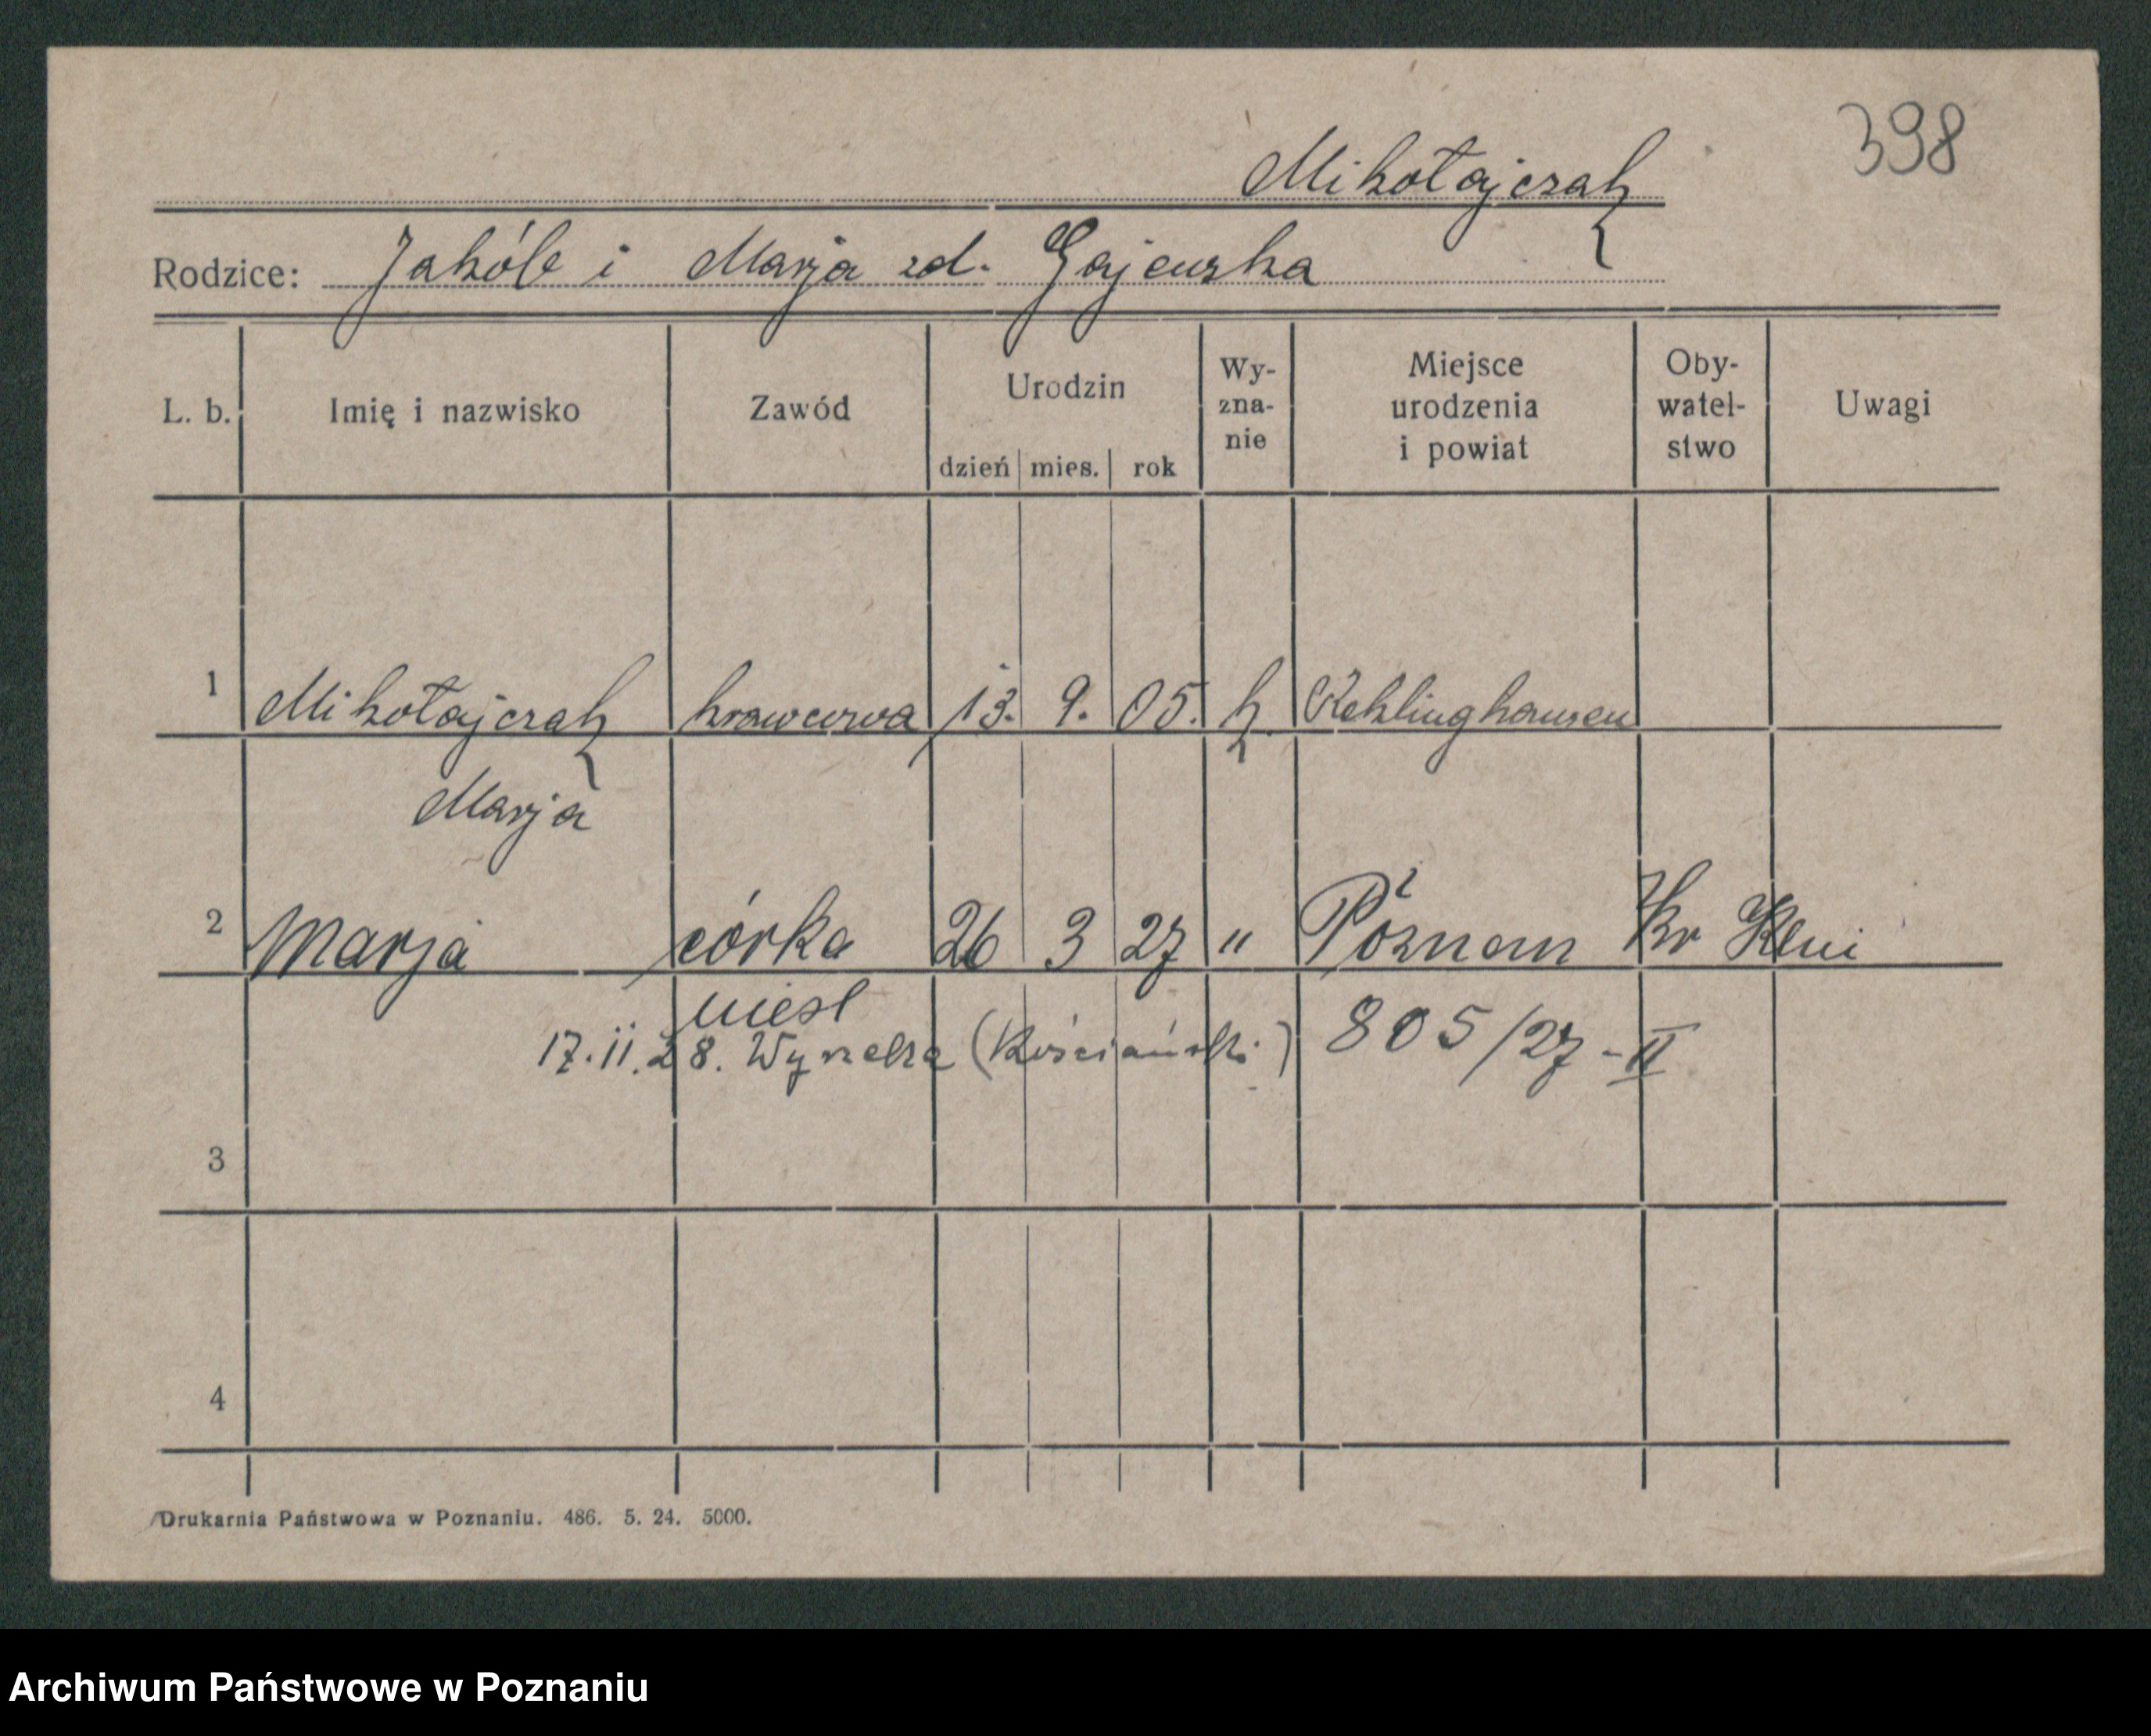 398
Mikołajczak
Rodzice: Jakób i Marja zd. Gajewska
L. b. Imię i nazwisko Zawód Urodzin dzień mies. rok Wy-zna-nie Miejsce urodzenia i powiat Oby-watel-stwo Uwagi
1 Mikołajczak krawcowa 13. 9. 05. k. Reklinghausen
Marja
2 Marja córka 26 3 27 " Poznan Kr
niesl
17.11.28. (Kościański) 805/27-II
3
4
Drukarnia Państwowa w Poznaniu. 486. 5. 24. 5000.
Archiwum Państwowe w Poznaniu